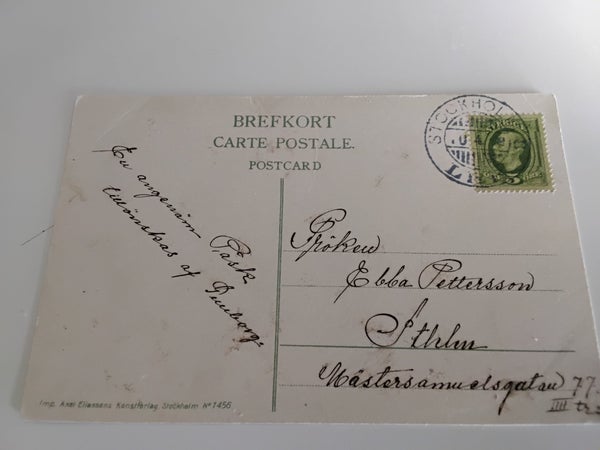 BREFKORT
CARTE POSTALE.
POSTCARD
STOCKHOL
LBR
En angenäm Påsk
tillönskas af
Fröken
Ebba Pettersson
Sthlm
Mästersamuelsgatan 77.
III tr.
Imp. Axel Eliassons Konstförlag Stockholm No 1456